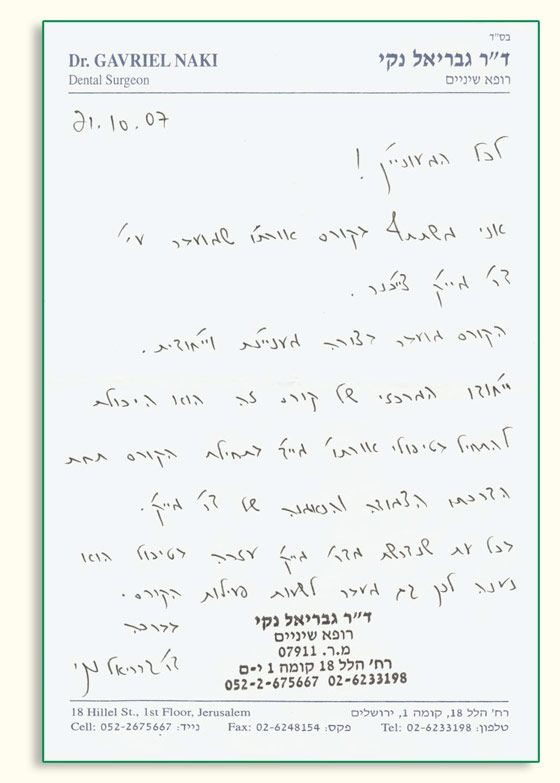 בס"ד
Dr. GAVRIEL NAKI
ד"ר גבריאל נקי
Dental Surgeon
רופא שיניים
21.10.07
לכל המעוניין!
אני משתתף בקורס אורתו שמועבר ע"י
ד"ר מייק
הקורס מועבר בצורה מעניינת וייחודית.
ייחודו המרכזי של קורס זה הוא היכולת
להתחיל בטיפולי אורתו' מייד בתחילת הקורס תחת
הדרכתו הצמודה והנאמנה של ד"ר מייק.
בכל עת שנדרשת מד"ר מייק עזרה בטיפול הוא
נענה לכך גם מעבר לשעות פעילות הקורס.
בברכה
ד"ר גבריאל נקי
ד"ר גבריאל נקי
רופא שיניים
מ.ר. 07911
רח' הלל 18 קומה 1 י-ם
052-2-675667 02-6233198
18 Hillel St., 1st Floor, Jerusalem
רח' הלל 18, קומה 1, ירושלים
Cell: 052-2675667 :נייד
Fax: 02-6248154 :פקס
Tel: 02-6233198 :טלפון